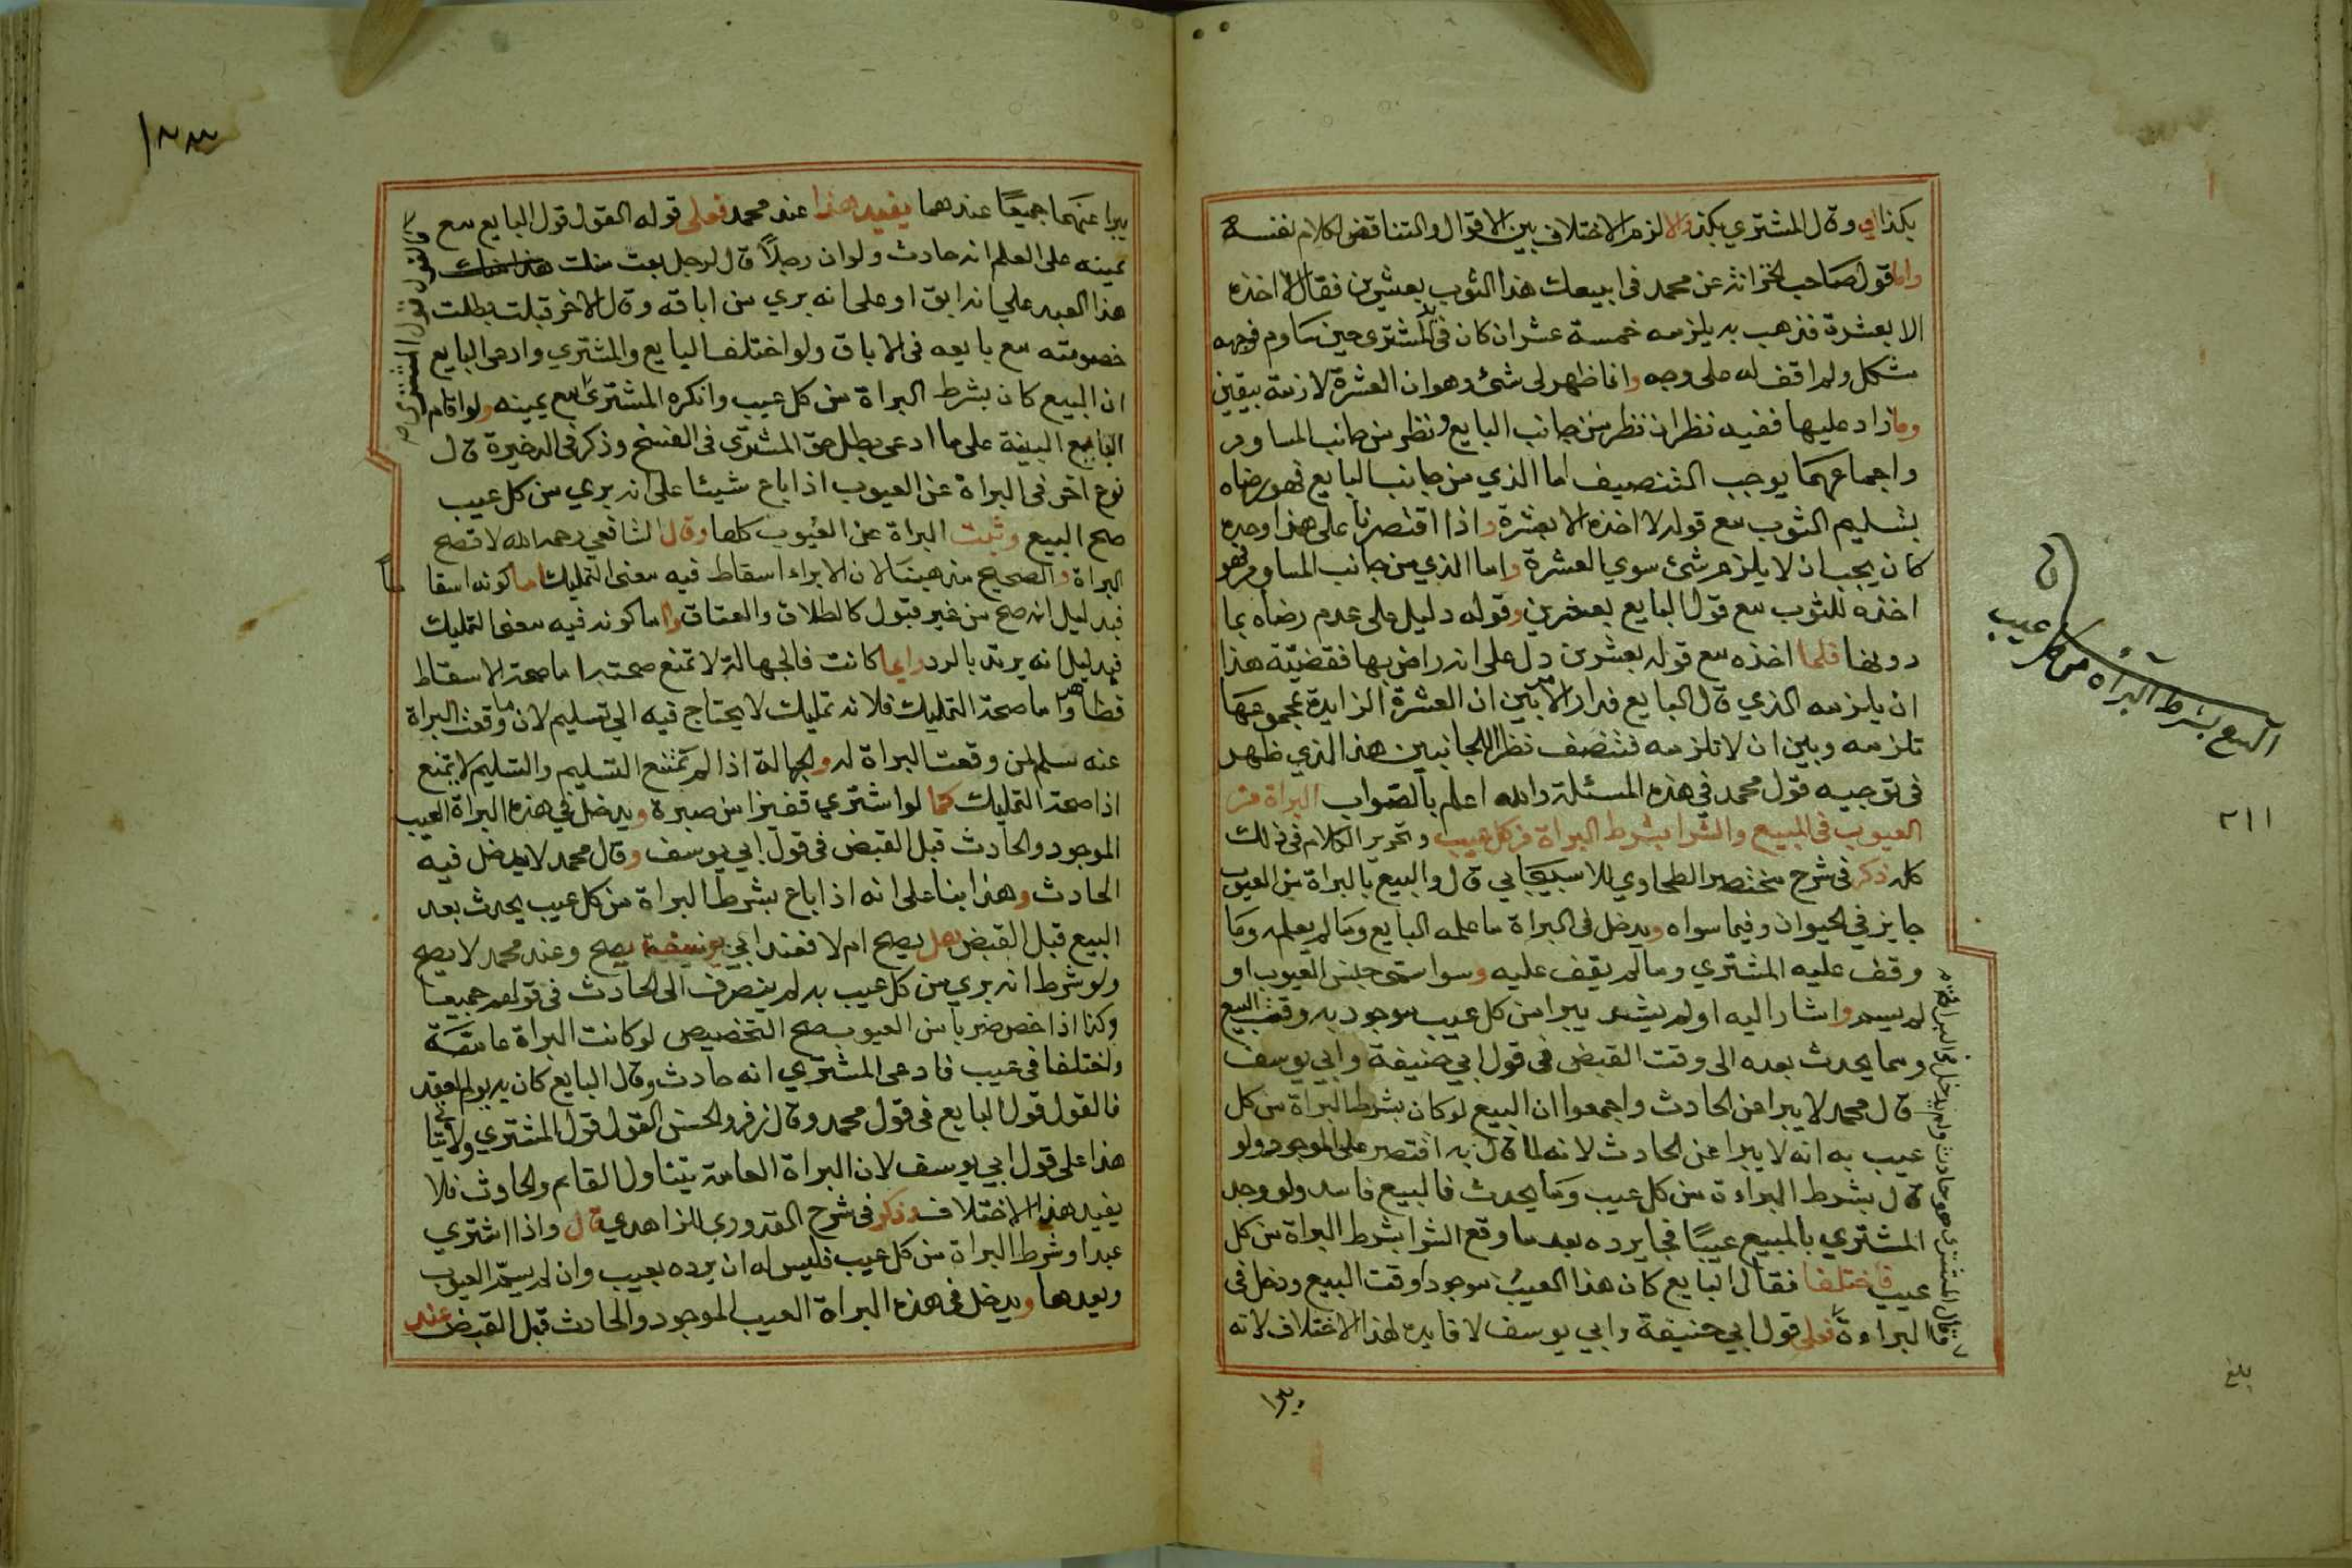 بكذا اي وقال المشتري بكذا والا لزم الاختلاف بين الاقوال والتناقض لكلام نفسه
واما قول صاحب الخزانة عن محمد في ابيعك هذا الثوب بعشرين فقال لا اخذه
الا بعشرة فذهب به يلزمه خمسة عشر ان كان في يد المشتري حين ساوم فوجهه
مشكل ولم اقف له على وجه وانما ظهر لي شئ وهو ان العشرة لازمة بيقين
وما زاد عليها ففيه نظران نظر من جانب البايع ونظر من جانب المساوم
واجماعهما يوجب التنصيف اما الذي من جانب البايع فهو رضاه
بتسليم الثوب مع قوله لا اخذه الا بعشرة واذا اقتصرنا على هذا وحده
كان يجب ان لا يلزم شئ سوي العشرة واما الذي من جانب المساوم فهو
اخذه للثوب مع قول البايع بعشرين وقوله دليل على عدم رضاه بما
دونها فلما اخذه مع قوله بعشرين دل على انه راض بها فقضيّة هذا
ان يلزمه الذي قال البايع فدار الامر بين ان العشرة الزايدة بمجموعها
تلزمه وبين ان لا تلزمه فتنصف نظرا للجانبين هذا الذي ظهر
في توجيه قول محمد في هذه المسئلة والله اعلم بالصواب البراة من
العيوب في المبيع والشرا بشرط البراة من كل عيب وتحرير الكلام في ذلك
كله ذكر في شرح مختصر الطحاوي للاسبيجابي قال والبيع بالبراة من العيوب
جايز في الحيوان وفيما سواه ويدخل في البراة ما علمه البايع وما لم يعلم وما
وقف عليه المشتري وما لم يقف عليه وسوا سمى جنس العيوب او
لم يسم واشار اليه او لم يشر يبرا من كل عيب موجود به وقت البيع
ومما يحدث بعده الى وقت القبض في قول ابي حنيفة وابي يوسف
قال محمد لا يبرا من الحادث واجمعوا ان البيع لو كان بشرط البراة من كل
عيب به انه لا يبرا عن الحادث لانه لما قال به اقتصر على الموجود ولو
قال بشرط البراءة من كل عيب وما يحدث فالبيع فاسد ولو وجد
المشتري بالمبيع عيبًا فجا يرده بعد ما وقع الشرا بشرط البراة من كل
عيب فاختلفا فقال البايع كان هذا العيب موجودا وقت البيع ودخل في
البراءة فعلى قول ابي حنيفة وابي يوسف لا فايدة لهذا الاختلاف لانه
وقال المشتري هو حادث ولم يدخل في البراءة
البيع بشرط البراة من كل عيب
٢١١
بلغ
يبرا
١٢٣
يبرا عنهما جميعًا عندهما يفيد هذا عند محمد فعلى قوله القول قول البايع مع
يمينه على العلم انه حادث ولو ان رجلاً قال لرجل بعت منك
هذا العبد علي انه ابق او على انه بري من اباقه وقال الاخر قبلت بطلت
خصومته مع بايعه في الاباق ولو اختلف البايع والمشتري وادعى البايع
ان البيع كان بشرط البراة من كل عيب وانكره المشتري مع يمينه ولو اقام
فالقول قول المشتري
البايع البينة على ما ادعى بطل حق المشتري في الفسخ وذكر في الذخيرة قال
نوع آخر في البراة عن العيوب اذا باع شيئا على انه بري من كل عيب
صح البيع وثبت البراة عن العيوب كلها وقال الشافعي رحمه الله لا تصح
البراة والصحيح مذهبنا لان الابراء اسقاط فيه معنى التمليك اما كونه اسقاطا
فبدليل انه صح من غير قبول كالطلاق والعتاق واما كونه فيه معنى التمليك
فبدليل انه يرتد بالرد وايما كانت فالجهالة لا تمنع صحته اما صحة الاسقاط
فظاهر واما صحة التمليك فلانه تمليك لا يحتاج فيه الى تسليم لان ما وقعت البراة
عنه سلم لمن وقعت البراة له والجهالة اذا لم تمنع التسليم والتسليم لا يمنع
اذا صحة التمليك كما لو اشتري قفيزا من صبرة ويدخل في هذه البراة العيب
الموجود والحادث قبل القبض في قول ابي يوسف وقال محمد لا يدخل فيه
الحادث وهذا بناعلى انه اذا باع بشرط البراة من كل عيب يحدث بعد
البيع قبل القبض هل يصح ام لا فعند ابي يوسف يصح وعند محمد لا يصح
ولو شرط انه بري من كل عيب به لم ينصرف الى الحادث في قولهم جميعا
وكذا اذا خص ضربا من العيوب صح التخصيص لو كانت البراة عامّة
واختلفا في عيب فادعى المشتري انه حادث وقال البايع كان به يوم العقد
فالقول قول البايع في قول محمد وقال زفر والحسن القول قول المشتري ولا يتاتى
هذا على قول ابي يوسف لان البراة العامة يتناول القايم والحادث فلا
يفيد هذا الاختلاف وذكر في شرح القدوري للزاهدي قال واذا اشتري
عبدا وشرط البراة من كل عيب فليس له ان يرده بعيب وان لم يسمّ العيوب
ويعدها ويدخل في هذه البراة العيب الموجود والحادث قبل القبض عند